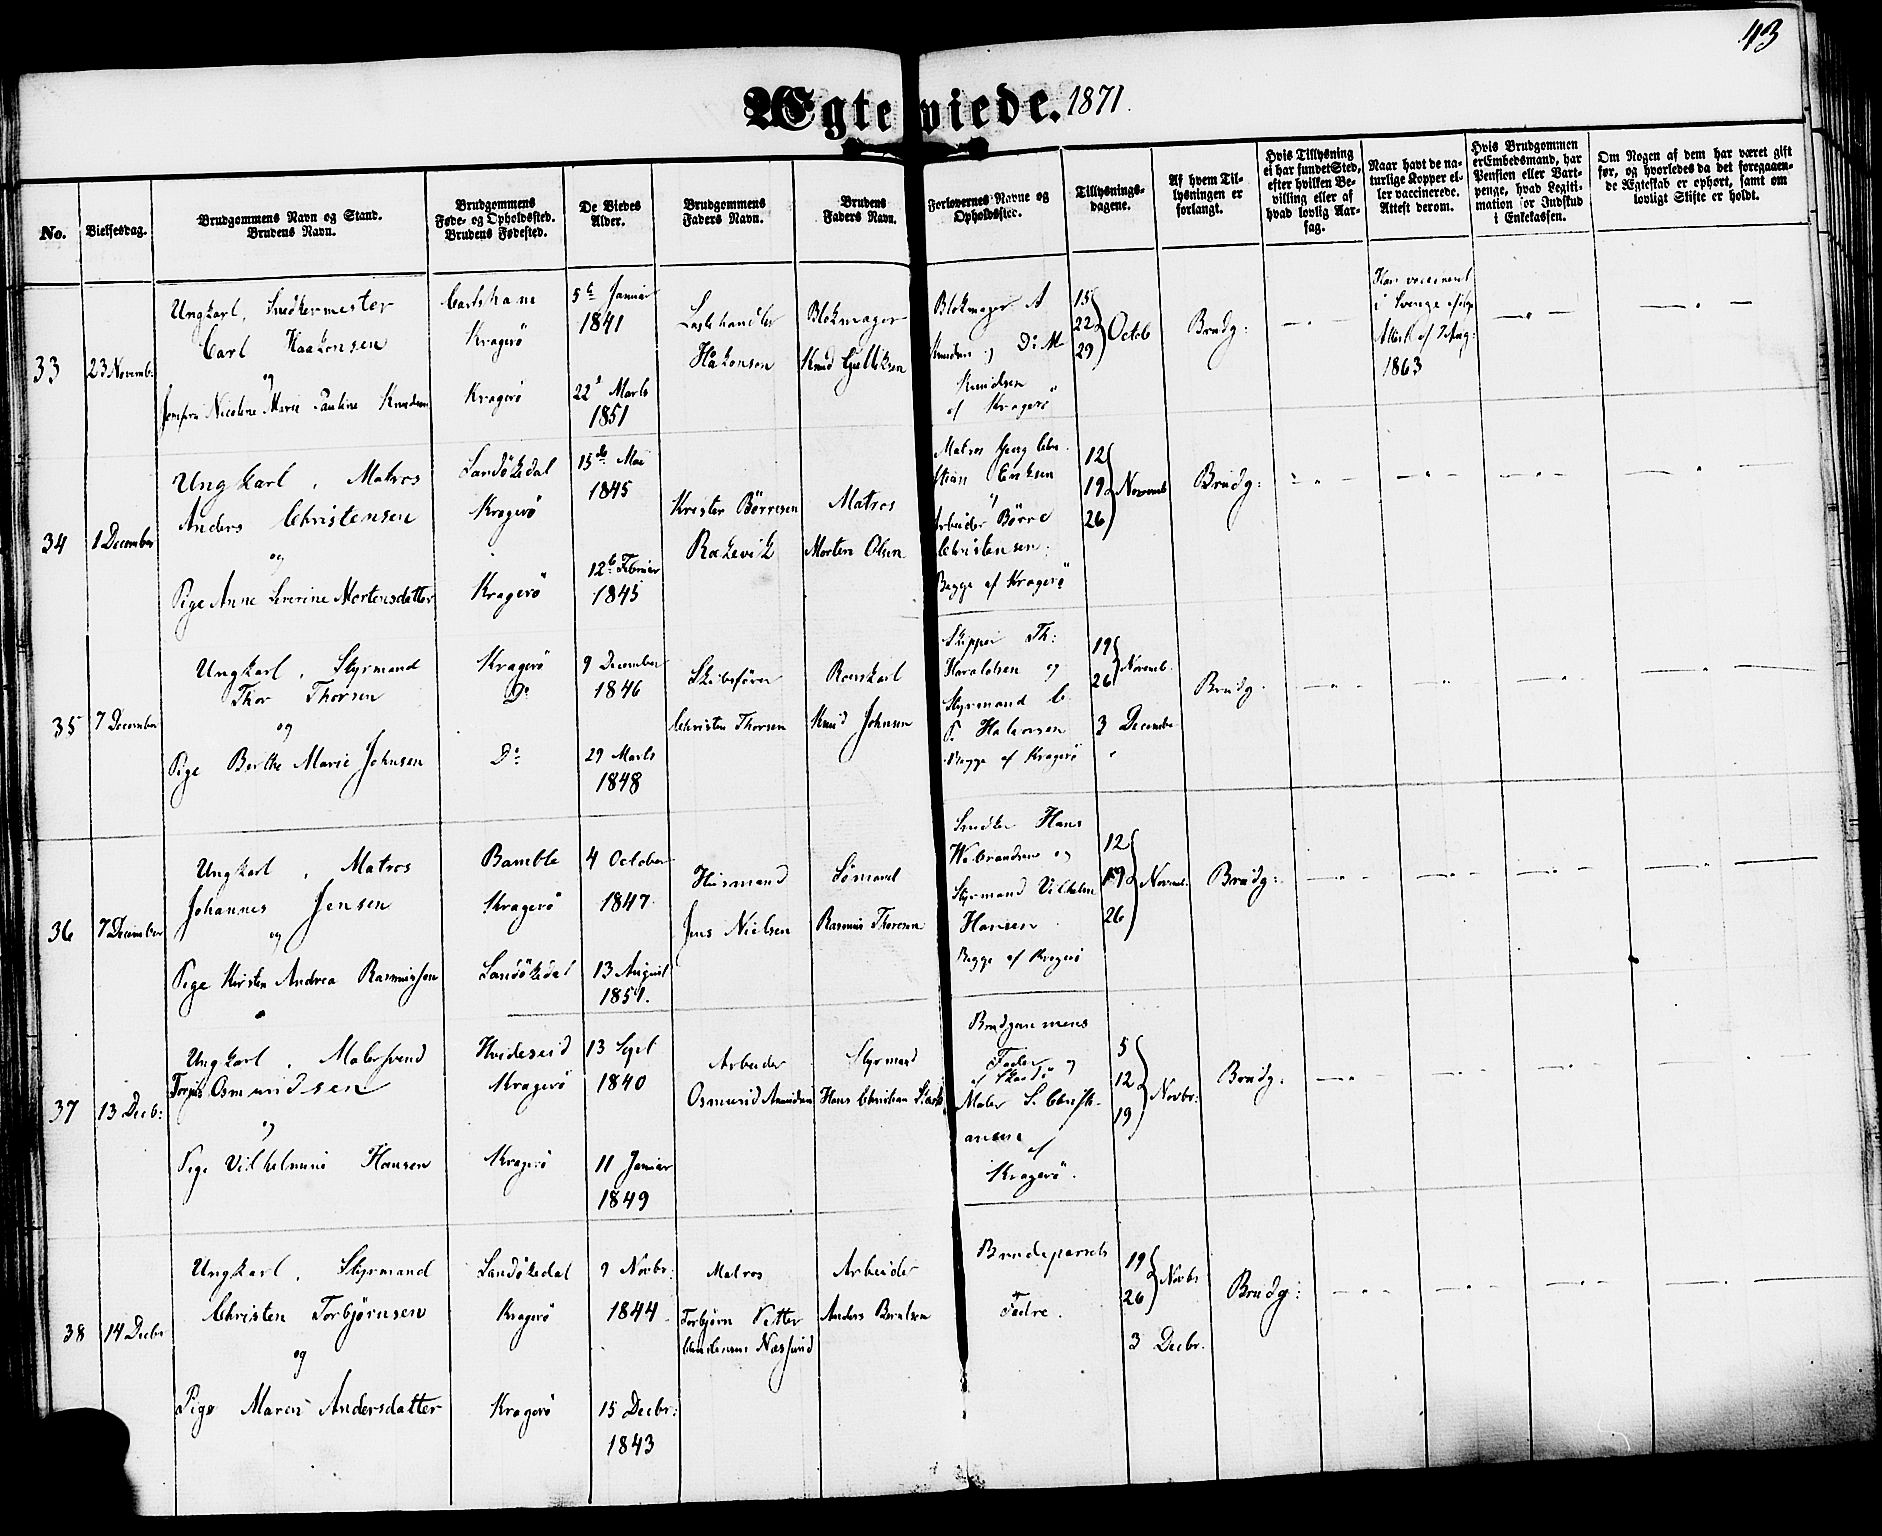 43
Ægteviede. 1871.
No.
Vielsesdag.
Brudgommens Navn og Stand.
Brudens Navn.
Brudgommens
Føde- og Opholdssted.
Brudens Fødested.
De Viedes
Alder.
Brudgommens
Faders Navn.
Brudens
Faders Navn.
Forlovernes Navne og
Opholdssted.
Tillysnings-
dagene.
Af hvem Til-
lysningen er
forlangt.
Hvis Tillysning
ei har fundet Sted,
efter hvilken Be-
villing eller af
hvad lovlig Aar-
sag.
Naar havt de na-
turlige Kopper el-
ler vaccinerede.
Attest derom.
Hvis Brudgommen
er Embedsmand, har
Pension eller Vart-
penge, hvad Legiti-
mation for Indskud
i Enkekassen.
Om Nogen af dem har været gift
før, og hvorledes da det foregaaen-
de Ægteskab er ophørt, samt om
lovligt Skifte er holdt.
33
23 Novemb:
Ungkarl, Snedkermester
Carl Haakonsen
og
Jomfru Nicoline Marie Pauline Knudsen
Carlshane
Kragerö
Kragerö
5te Januar
1841
22de Marts
1851
Håkonson
Blokmager
Knud Gulliksen
Blokmager A
Knudsen og Do M
Knudsen
af Kragerö
15
22
29
Octob
Brudg:
Har vaccineret
i Sverige ifölge
Attest af 7 Aug:
1863
34
1 December
Ungkarl, Matros
Anders Christensen
og
Pige Anne Severine Mortensdatter
Sandökedal
Kragerö
Kragerö
15de Mai
1845
12te Februar
1845
Krister Börresen
Rækevik
Matros
Morten Olsen
Matros Georg Chri-
stian Eriksen
og
Arbeider Börre
Christensen.
Begge af Kragerö
12
19
26
Novemb
Brudg:
35
7 December
Ungkarl, Styrmand
Thor Thorsen
og
Pige Berthe Marie Johnsen
Kragerö
Do
Do
9 December
1846
29 Marts
1848
Skibsförer
Christen Thorsen
Knud Johnsen
Skipper Th:
Haraldsen og
Styrmand C.
P. Halvorsen
Begge af Kragerö
19
26
Novemb.
3 Decembe
Brudg.
36
7 December
Ungkarl, Matros
Johannes Jensen
og
Pige Kirsten Andrea Rasmussen
Bamble
Kragerö
Sandökedal
4 October
1847.
13 August
1851.
Husmand
Jens Nielsen
Sömand
Rasmus Thoresen
Snedker Hans
Wibrandsen og
Styrmand Vilhelm
Hansen
Begge af Kragerö
12
19
26
Novemb.
Brudg:
37
13 Decb:
Ungkarl, Malersvend
Torjus Osmundsen
og
Pige Vilhelmine Hansen
Hvideseid
Kragerö
Kragerö
13 Sept
1840
11 Januar
1849
Arbeider
Osmund Amundsen
Styrmand
Hans Christian
Brudgommens
Fader og
Maler S. Christi-
ansen
af
Kragerö.
5
12
19
Novbr:
Brudg.
38
14 Decbr
Ungkarl, Styrmand
Christen Torbjörnsen
og
Pige Maren Andersdatter
Sandökedal
Kragerö
Kragerö
9 Novbr:
1844.
15 Decbr:
1843
Matros
Torbjörn Petter
Christensen
Arbeider
Anders Berntsen
Brudeparrets
Fædre.
19
26
Novbr
3 Decbr.
Brudg: